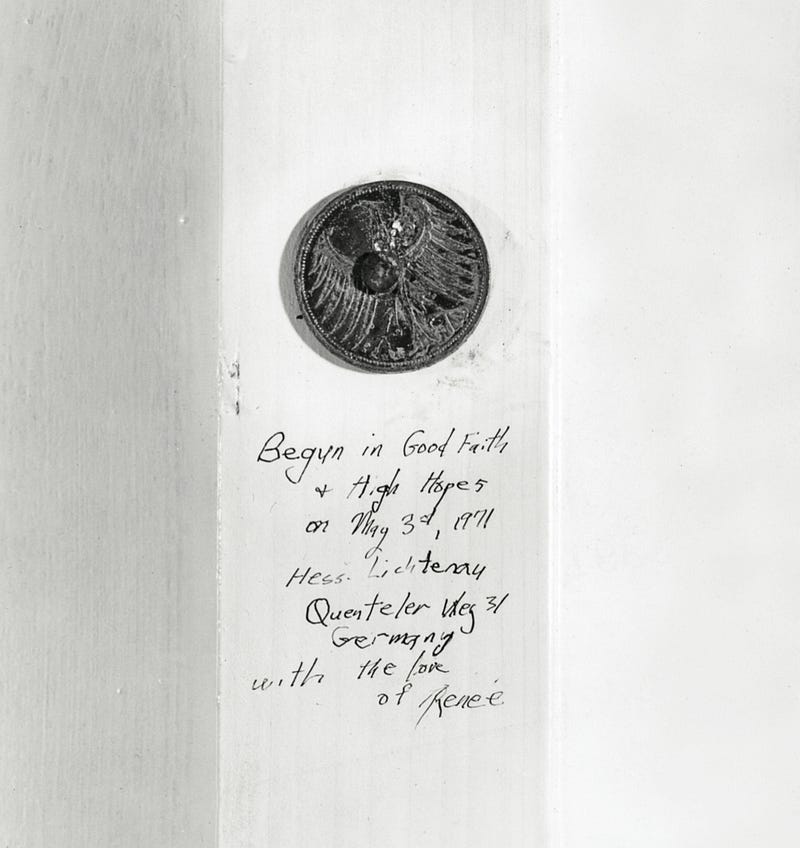 Begun in Good Faith
& High Hopes
on May 3rd, 1971
Hess. Lichtenau
Quenteler Weg 31
Germany
with the love
of Reneé